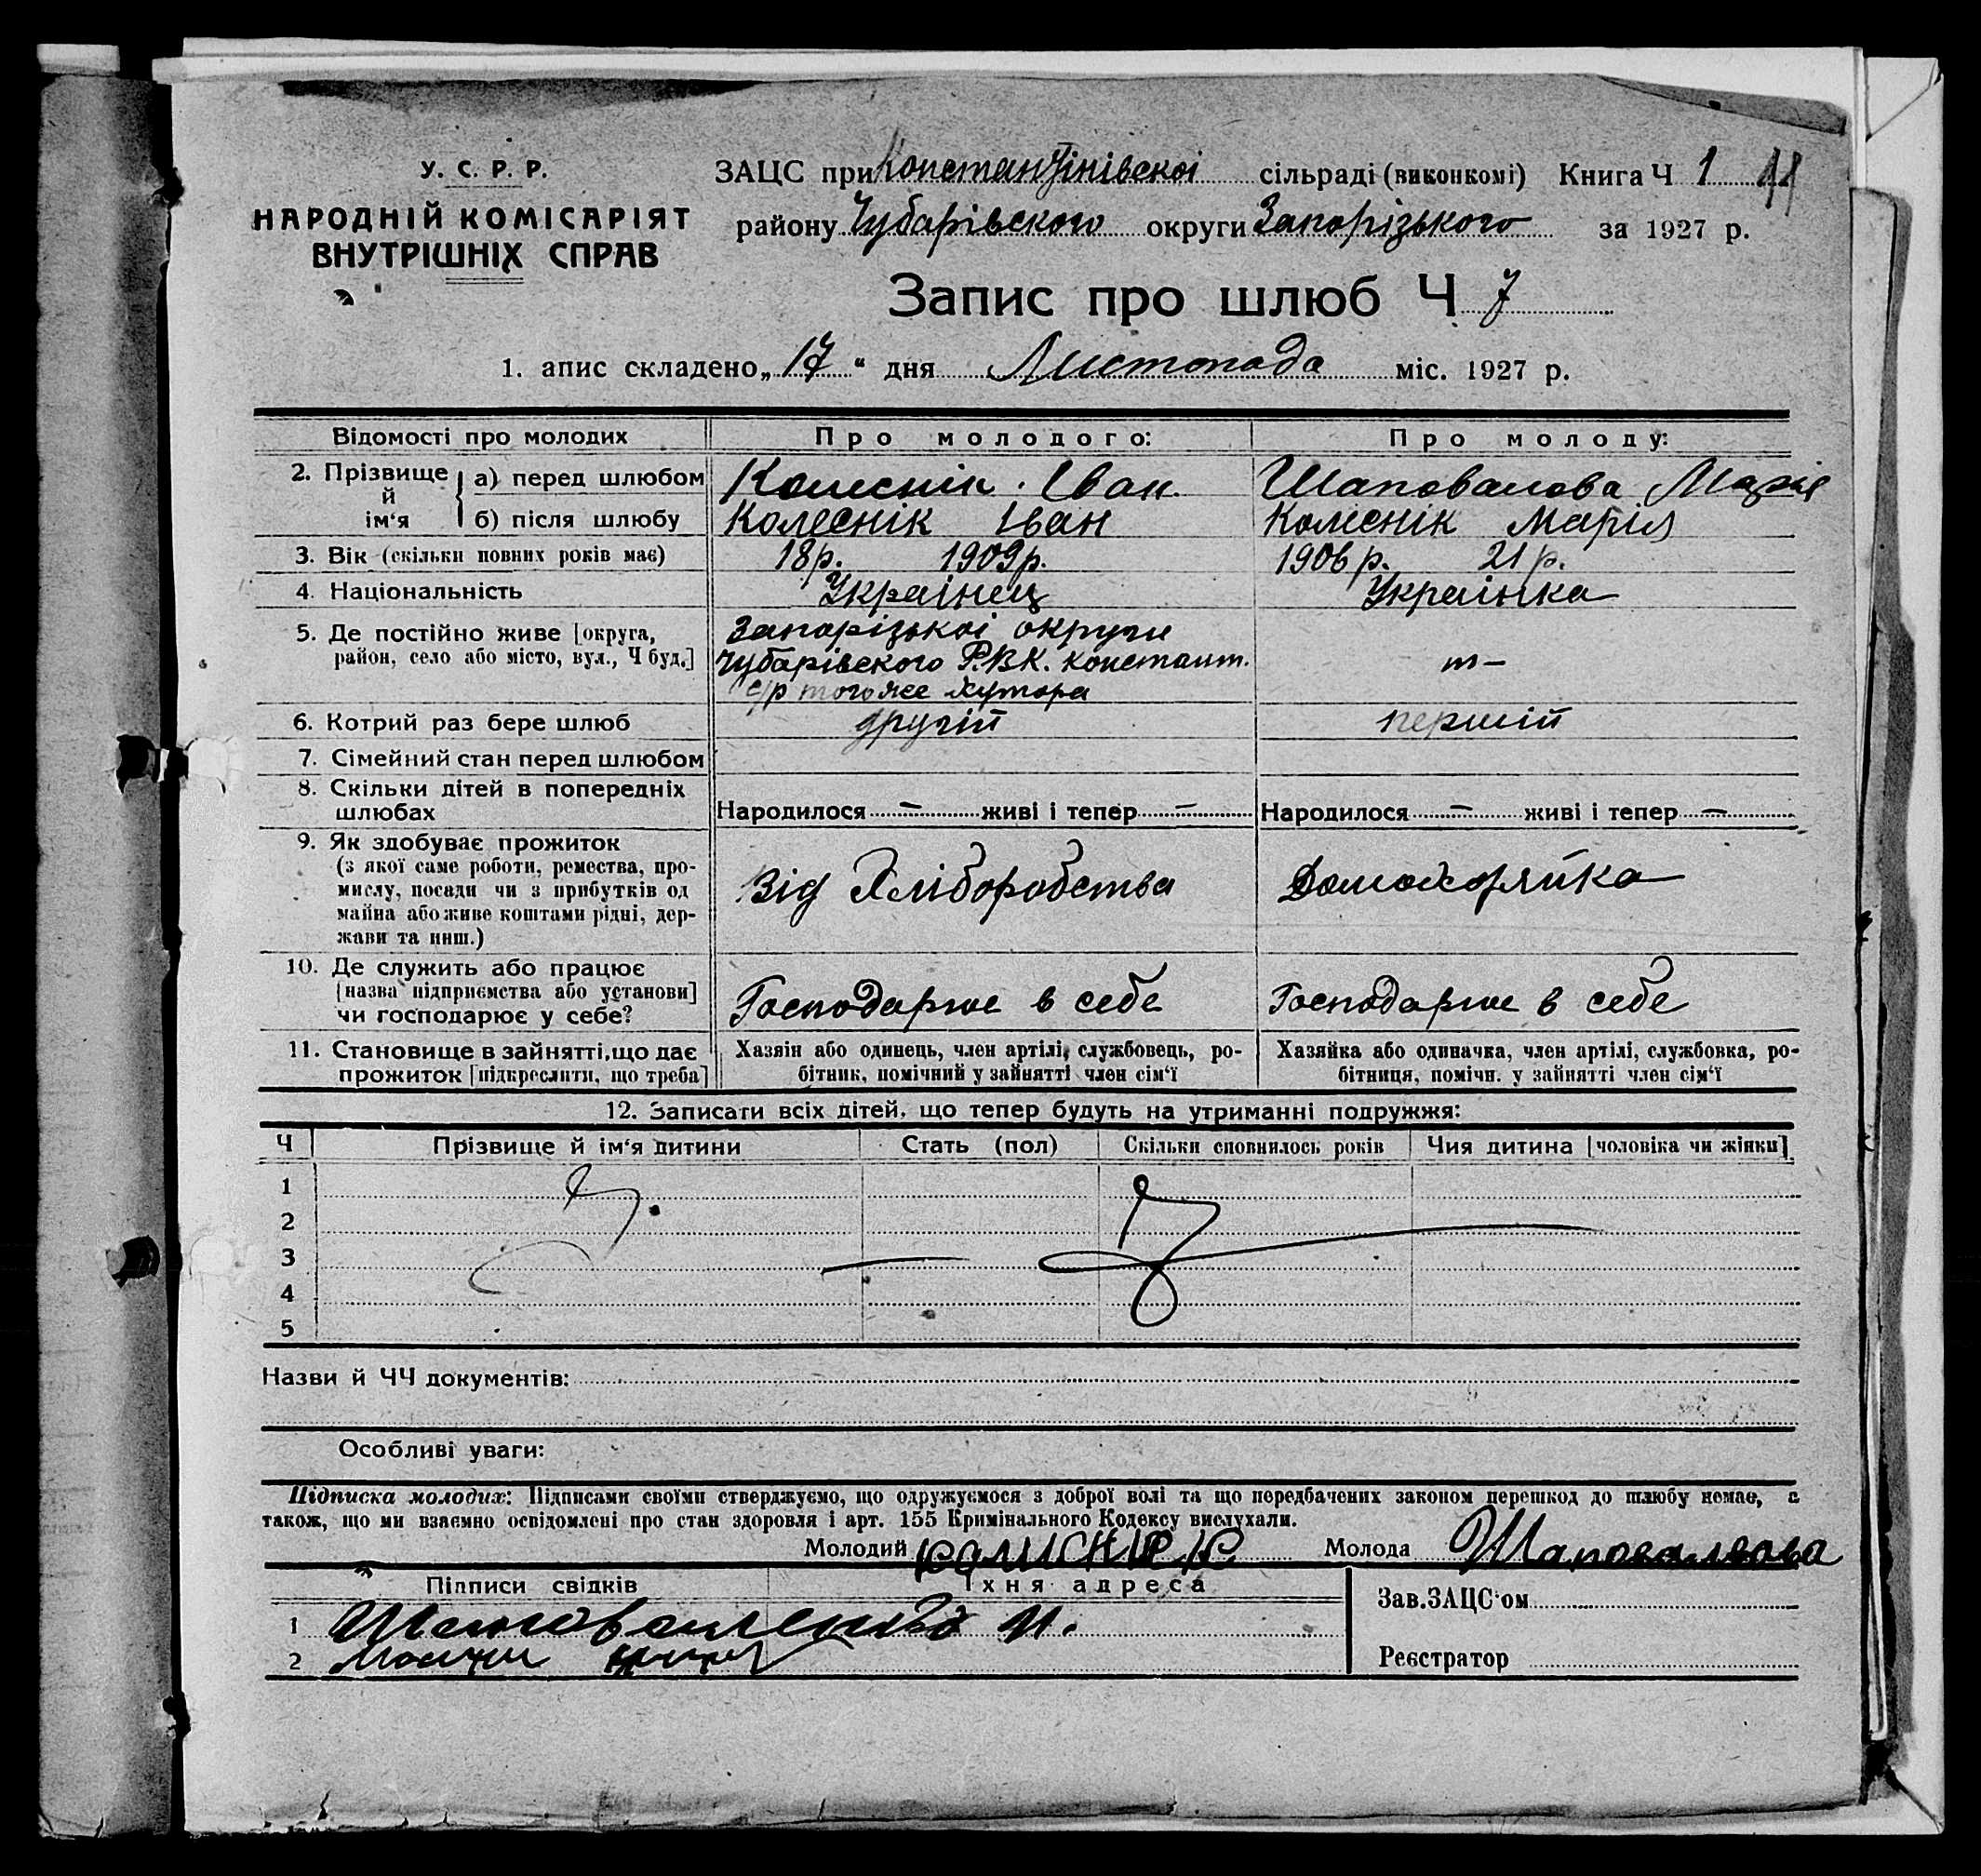 У. С. Р. Р.
НАРОДНІЙ КОМІСАРІЯТ
ВНУТРІШНІХ СПРАВ
ЗАЦС при Константінівскоі сільраді (виконкомі) Книга Ч 1 11
району Чубарівского округи Запорізького за 1927 р.
Запис про шлюб Ч 7
1. апис складено „17“ дня Листопада міс. 1927 р.
Відомості про молодих Про молодого: Про молоду:
2. Прізвище й ім‘я а) перед шлюбом Колеснік Іван Шаповалова Марія
б) після шлюбу Колеснік Іван Колеснік Марія
3. Вік (скільки повних років має) 18р. 1909р. 1906р. 21р.
4. Національність Украінец Украінка
5. Де постійно живе [округа, район, село або місто, вул., Ч буд.] Запорізькоі округи
Чубарівского Р.В.К. констант.
с/р того же хутора
6. Котрий раз бере шлюб другій першій
7. Сімейний стан перед шлюбом
8. Скільки дітей в попередніх шлюбах Народилося – живі і тепер – Народилося – живі і тепер –
9. Як здобуває прожиток
(з якої саме роботи, ремества, про-
мислу, посади чи з прибутків од
майна або живе коштами рідні, дер-
жави та инш.)
Від Хліборобства Домохозяйка
10. Де служить або працює
[назва підприємства або установи]
чи господарює у себе?
Господарює в себе Господарює в себе
11. Становище в зайнятті, що дає
прожиток [підкреслити, що треба]
Хазяін або одинець, член артілі, службовець, ро-
бітник, помічний у зайнятті член сім‘ї
Хазяйка або одиначка, член артілі, службовка, ро-
бітниця, помічн. у зайнятті член сім‘ї
12. Записати всіх дітей, що тепер будуть на утриманні подружжя:
Ч Прізвище й ім‘я дитини Стать (пол) Скільки сповнилось років Чия дитина [чоловіка чи жінки]
1
2
3
4
5
Назви й ЧЧ документів:
Особливі уваги:
Підписка молодих: Підписами своїми стверджуємо, що одружуємося з доброї волі та що передбачених законом перешкод до шлюбу немає, а
також, що ми взаємно освідомлені про стан здоровля і арт. 155 Кримінального Кодексу вислухали.
Молодий Молода Шаповалова
Підписи свідків Їхня адреса
1
2
Зав.ЗАЦС‘ом
Реєстратор